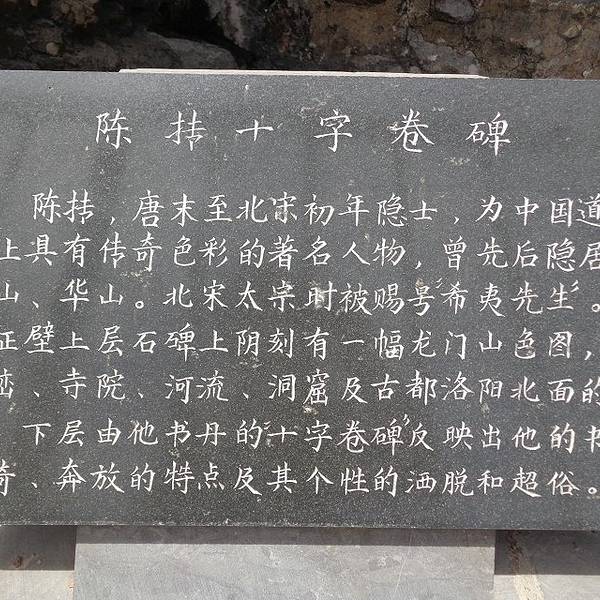 陈抟十字卷碑
陈抟，唐末至北宋初年隐士，为中国道
上具有传奇色彩的著名人物，曾先后隐居
山、华山。北宋太宗时被赐号“希夷先生”。
正壁上层石碑上阴刻有一幅龙门山色图，
峦、寺院、河流、洞窟及古都洛阳北面的
下层由他书丹的“十字卷碑”反映出他的书
奇、奔放的特点及其个性的洒脱和超俗。